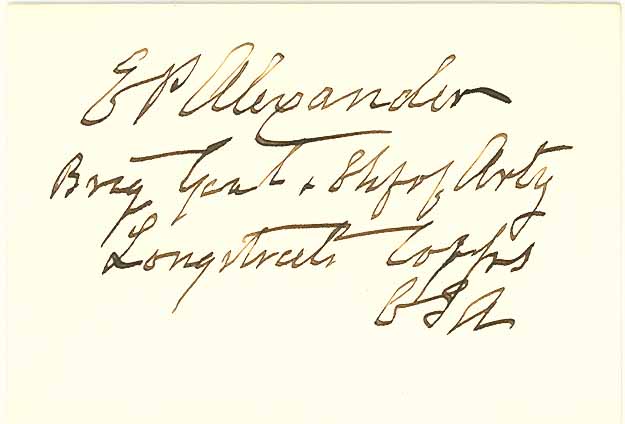 E P Alexander
Brig Genl & Chf of Arty
Longstreets Corps
CSA